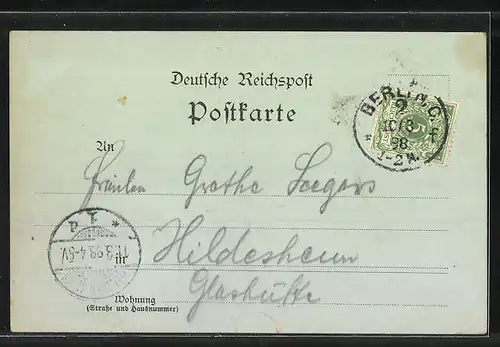 Deutsche Reichspost
Postkarte
BERLIN.C.
2
10/3
98
1-2N.
*
f
5
An
Fräulein Grethe Seegers
in
Hildesheim
Glashütte
11.3.98.4-5V.
*
Wohnung
(Straße und Hausnummer)